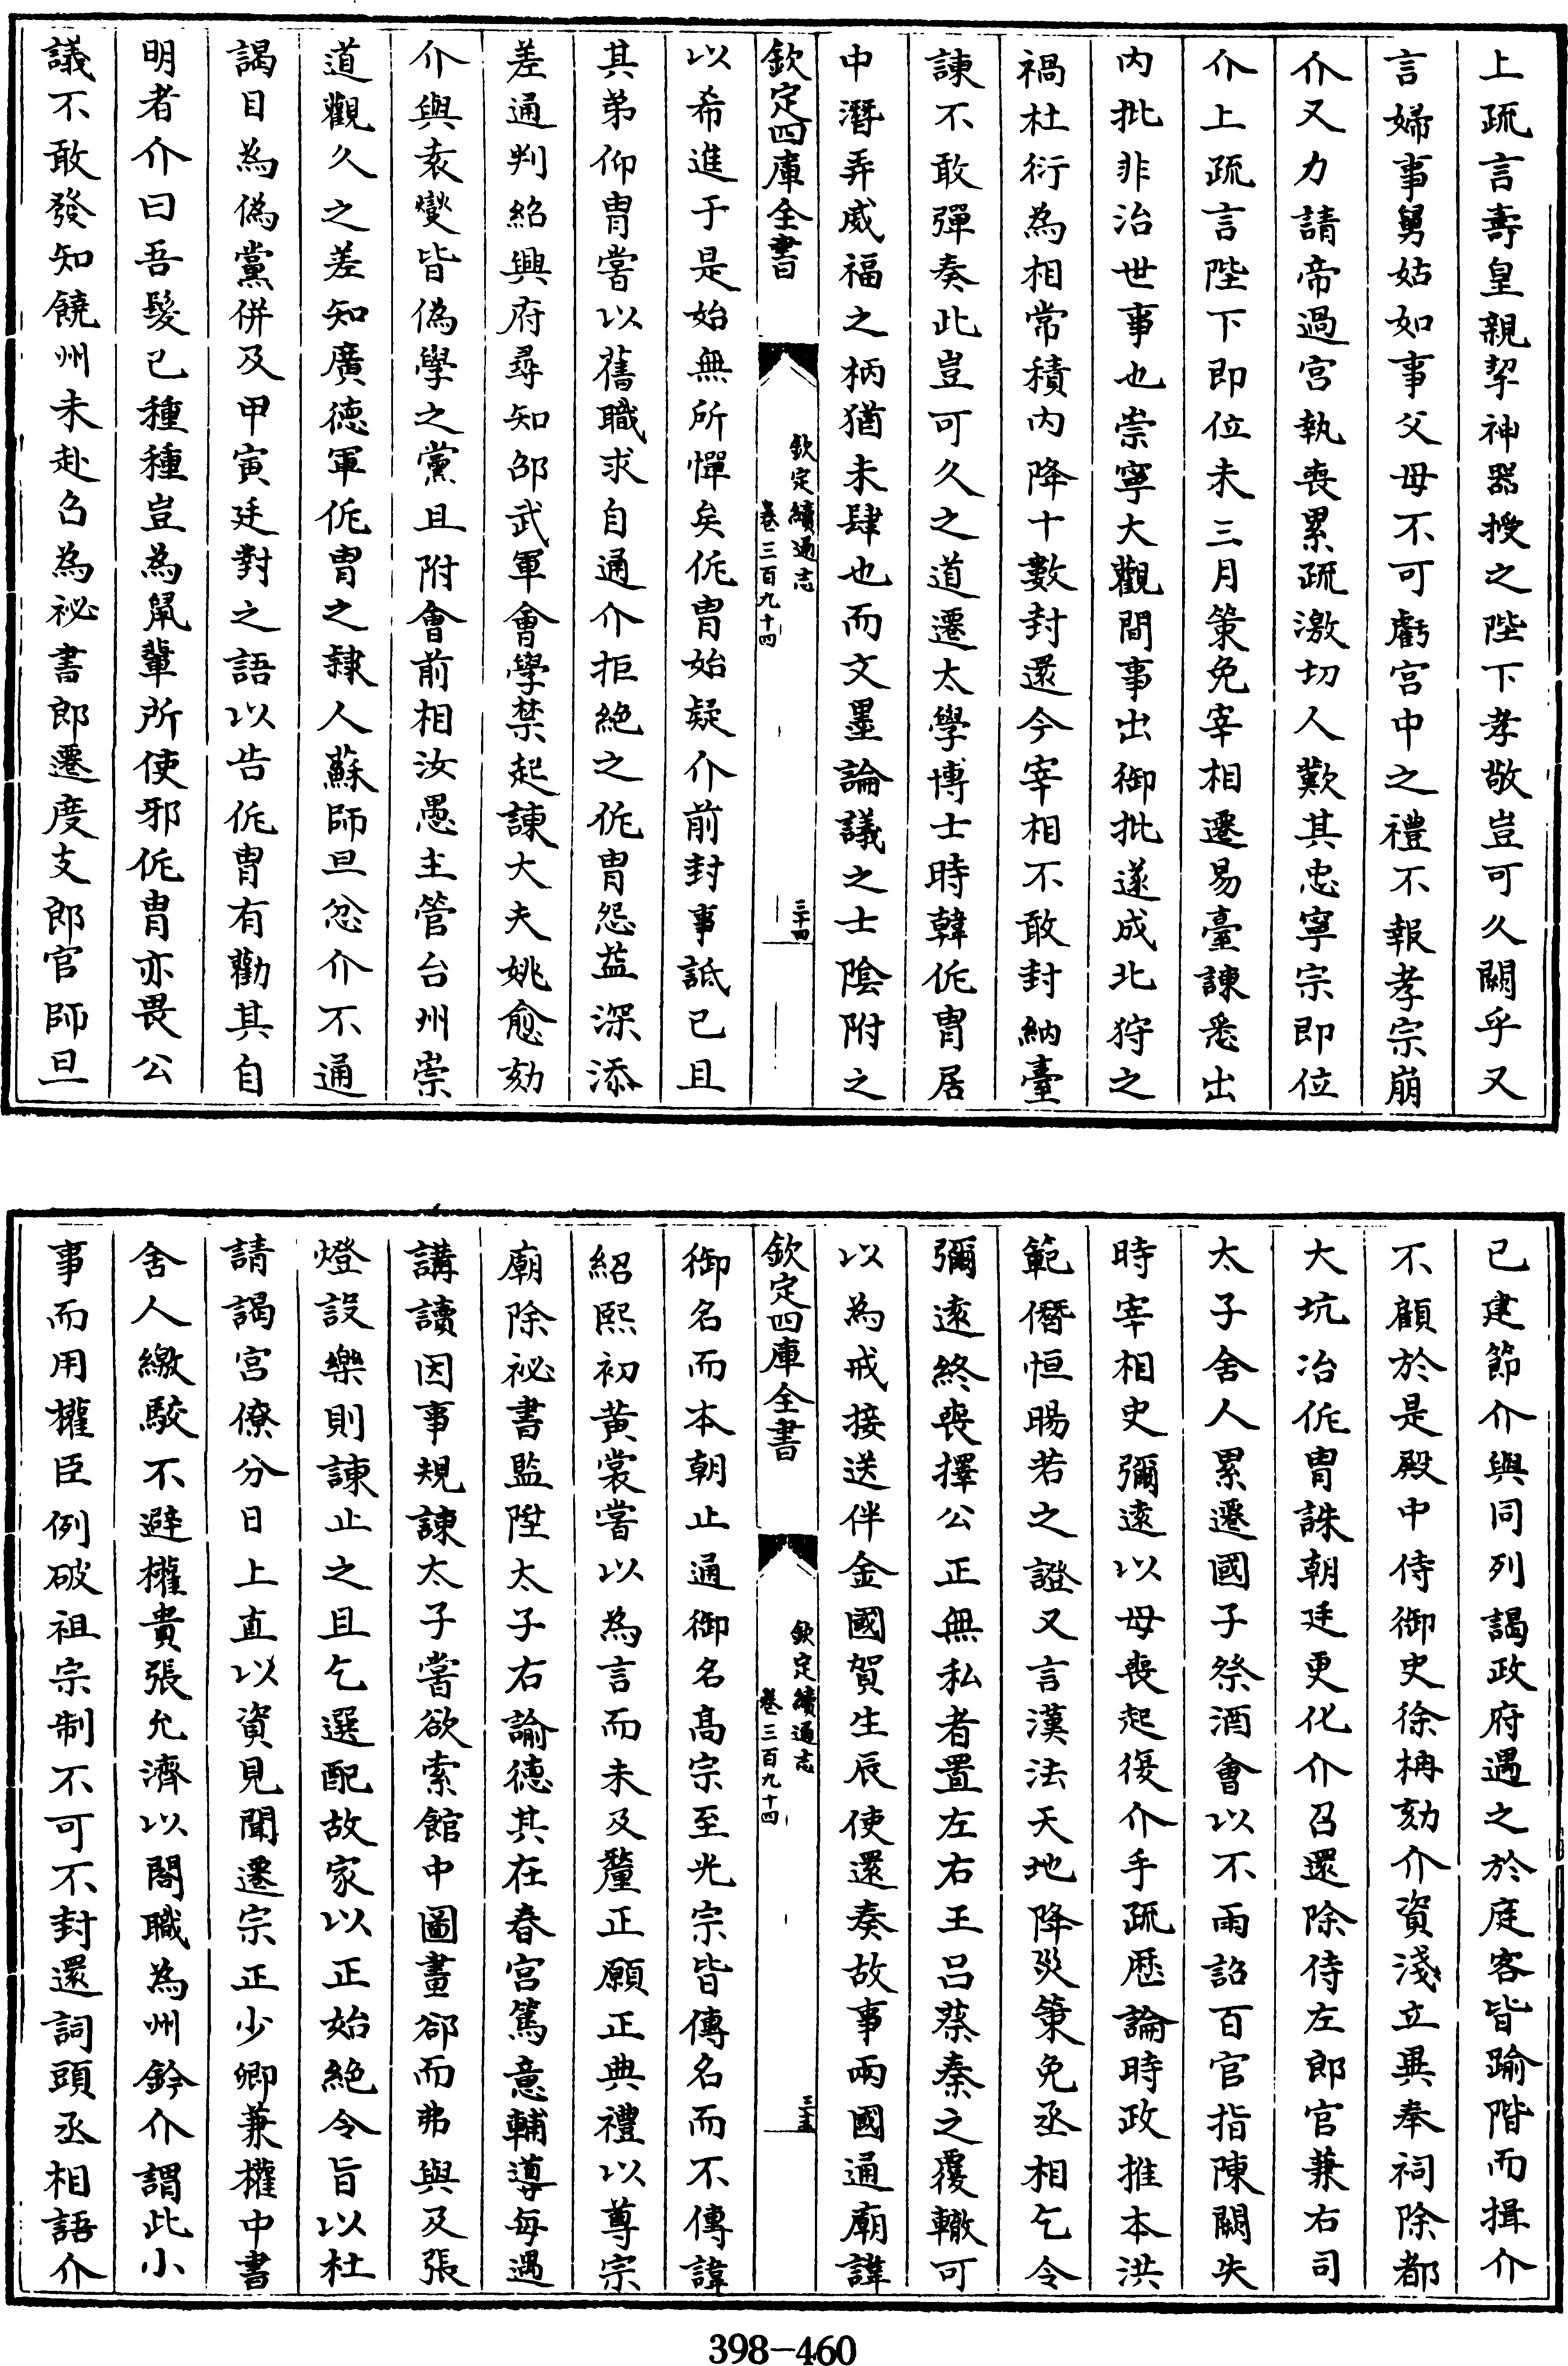 上疏言壽皇親挈神器授之陛下孝敬豈可久闕乎又
言婦事舅姑如事父母不可虧宮中之禮不報孝宗崩
介又力請帝過宮執喪累疏激切人歎其忠寧宗即位
介上疏言陛下即位未三月策免宰相遷易臺諫悉出
内批非治世事也崇寧大觀間事出御批遂成北狩之
禍杜衍為相常積内降十數封還今宰相不敢封納臺
諫不敢彈奏此豈可久之道遷太學博士時韓侂胄居
中潛弄威福之柄猶未肆也而文墨論議之士陰附之
欽定四庫全書
欽定續通志
卷三百九十四
三十四
以希進于是始無所憚矣侂胄始疑介前封事詆已且
其弟仰胄嘗以舊職求自通介拒絶之侂胄怨益深添
差通判紹興府尋知邵武軍會學禁起諫大夫姚愈劾
介與袁燮皆偽學之黨且附會前相汝愚主管台州崇
道觀久之差知廣德軍侂胄之隷人蘇師旦忿介不通
謁目為偽黨併及甲寅廷對之語以告侂胄有勸其自
明者介曰吾髮已種種豈為鼠輩所使邪侂胄亦畏公
議不敢發知饒州未赴召為祕書郎遷度支郎官師旦
已建節介與同列謁政府遇之於庭客皆踰階而揖介
不顧於是殿中侍御史徐柟劾介資淺立異奉祠除都
大坑冶侂胄誅朝廷更化介召還除侍左郎官兼右司
太子舍人累遷國子祭酒會以不雨詔百官指陳闕失
時宰相史彌遠以母喪起復介手疏歴論時政推本洪
範僭恒暘若之證又言漢法天地降災策免丞相乞令
彌遠終喪擇公正無私者置左右王吕蔡秦之覆轍可
以為戒接送伴金國賀生辰使還奏故事兩國通廟諱
欽定四庫全書
欽定續通志
卷三百九十四
三十五
御名而本朝止通御名高宗至光宗皆傳名而不傳諱
紹熙初黄裳嘗以為言而未及釐正願正典禮以尊宗
廟除祕書監陞太子右諭德其在春宮篤意輔導每遇
講讀因事規諫太子嘗欲索館中圖畫卻而弗與及張
燈設樂則諫止之且乞選配故家以正始絶令旨以杜
請謁宮僚分日上直以資見聞遷宗正少卿兼權中書
舍人繳駮不避權貴張允濟以閤職為州鈐介謂此小
事而用權臣例破祖宗制不可不封還詞頭丞相語介
398-460